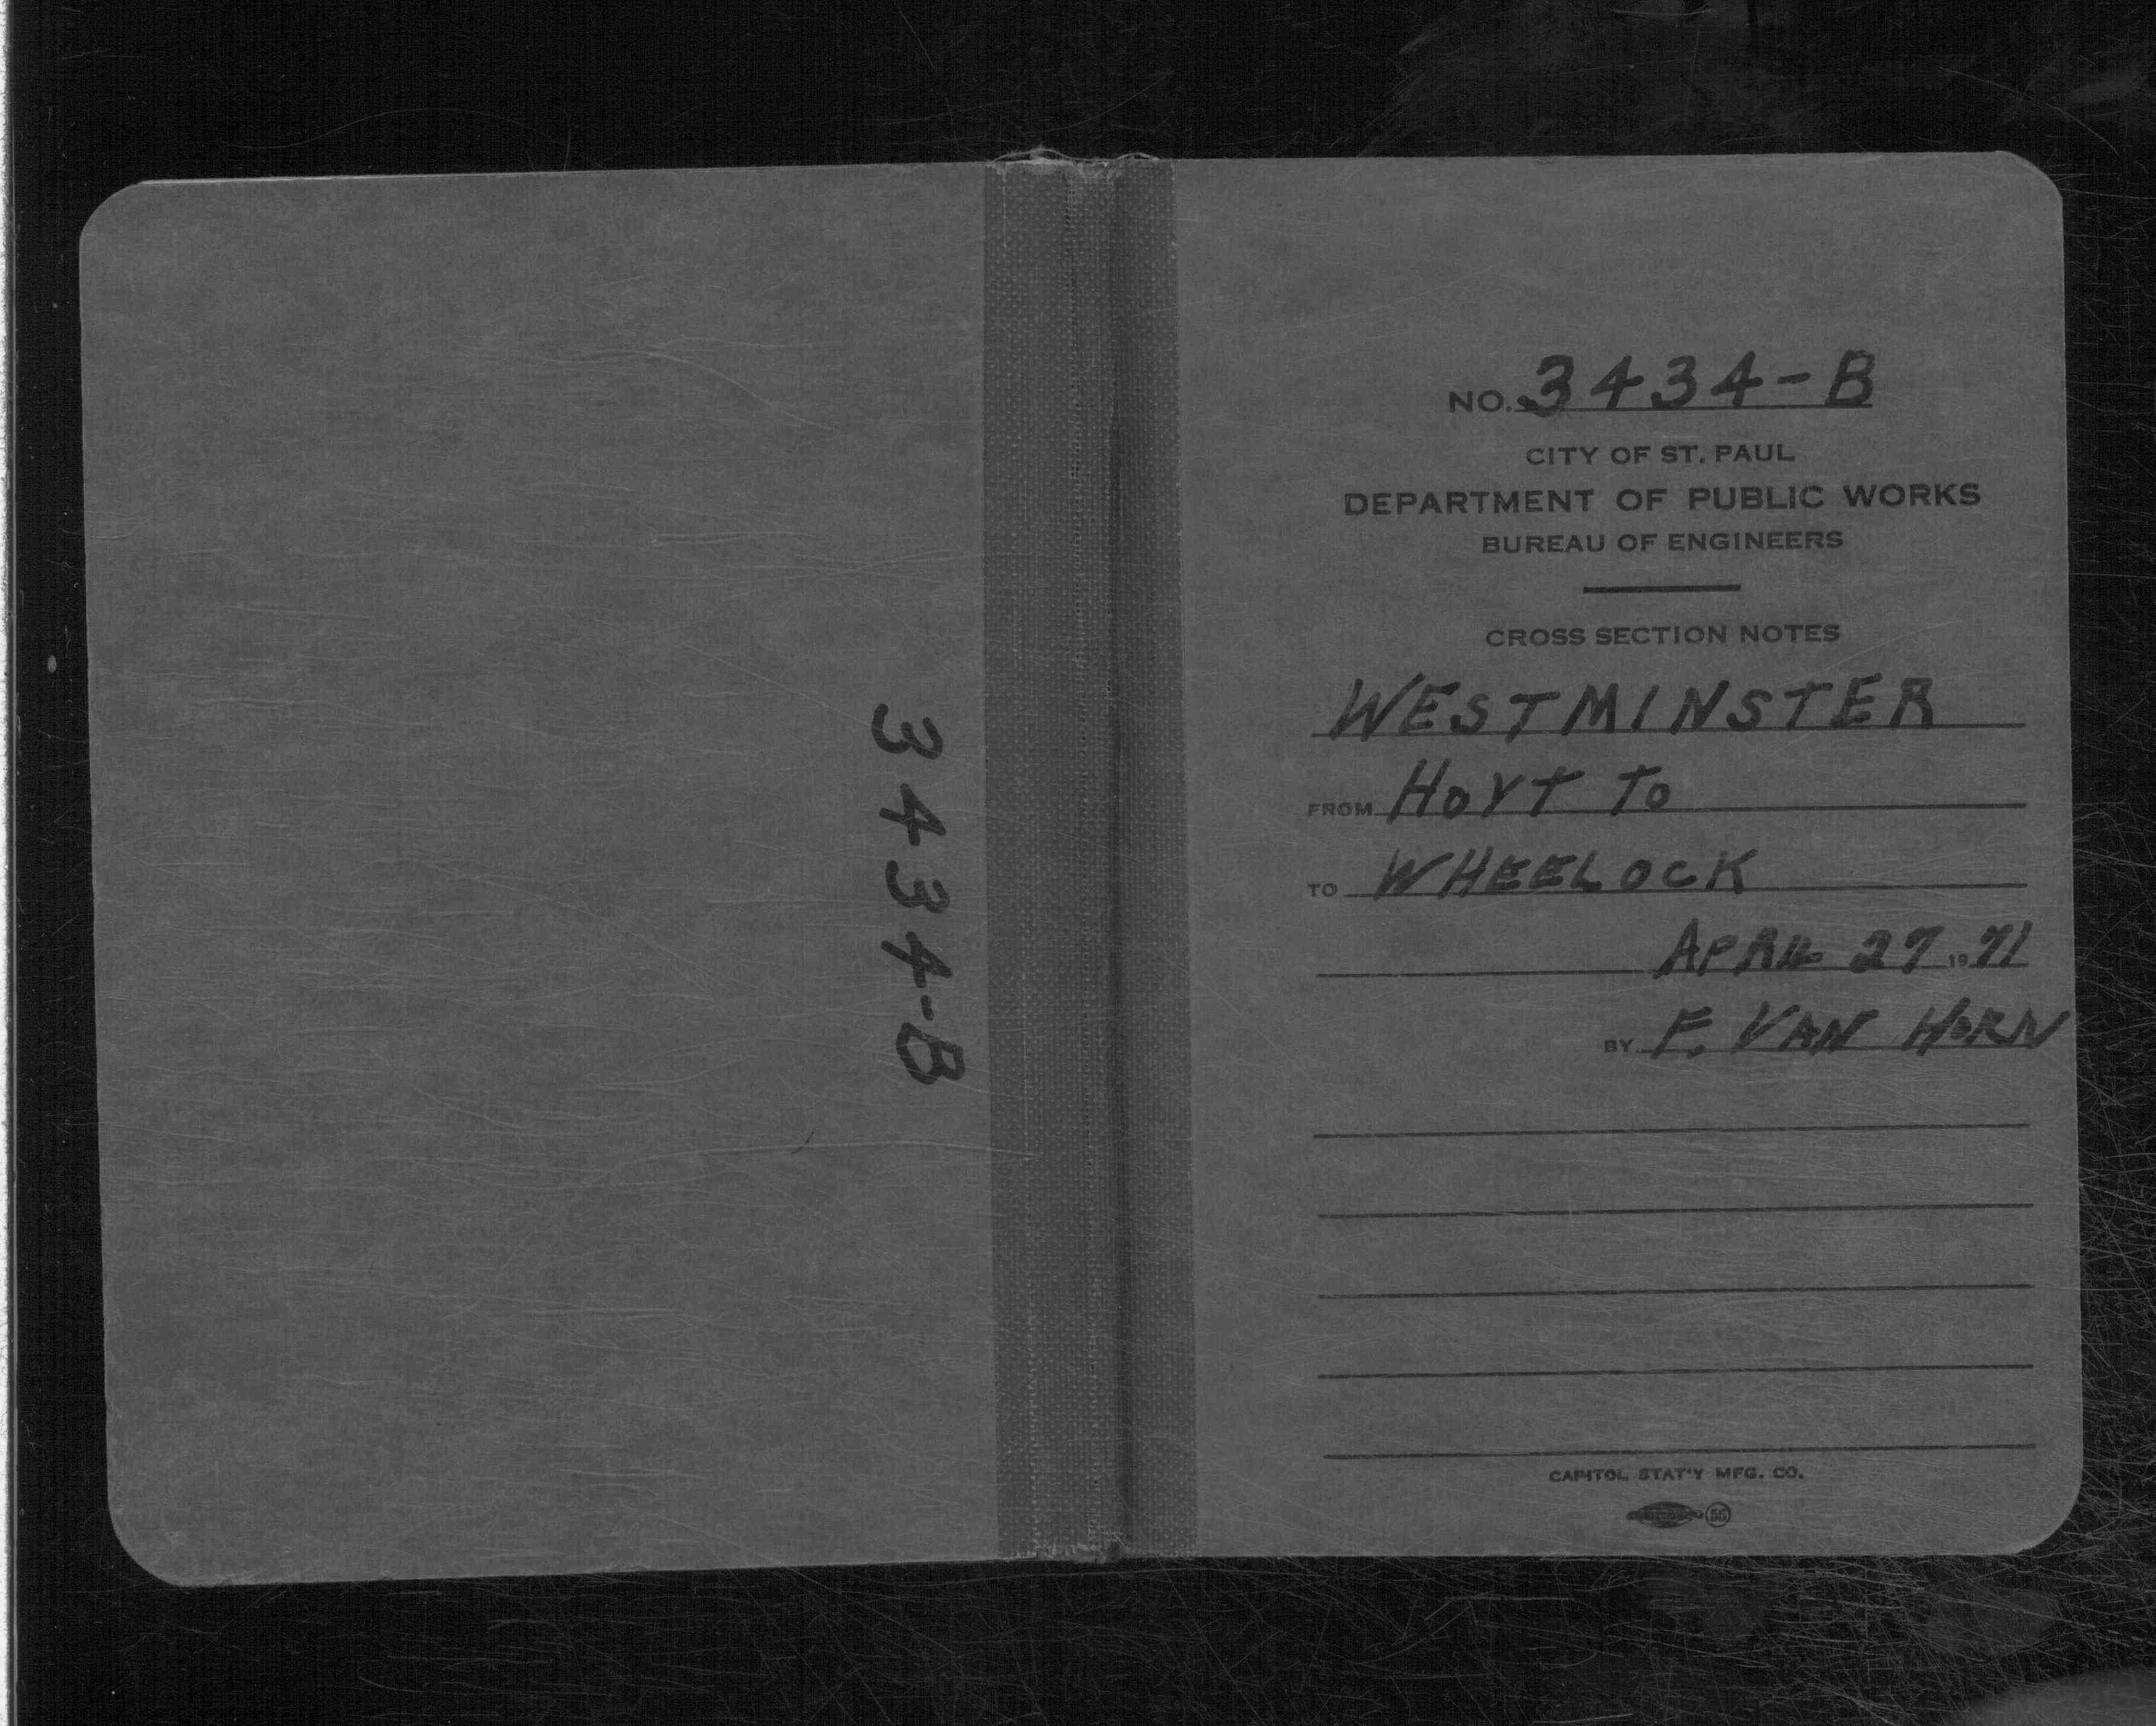 3434-B
NO. 3434-B
CITY OF ST. PAUL
DEPARTMENT OF PUBLIC WORKS
BUREAU OF ENGINEERS
CROSS SECTION NOTES
WESTMINSTER
FROM HOYT TO
TO WHEELOCK
APRIL 27 1971
BY F. VAN HORN
CAPITOL STAT'Y MFG. CO.